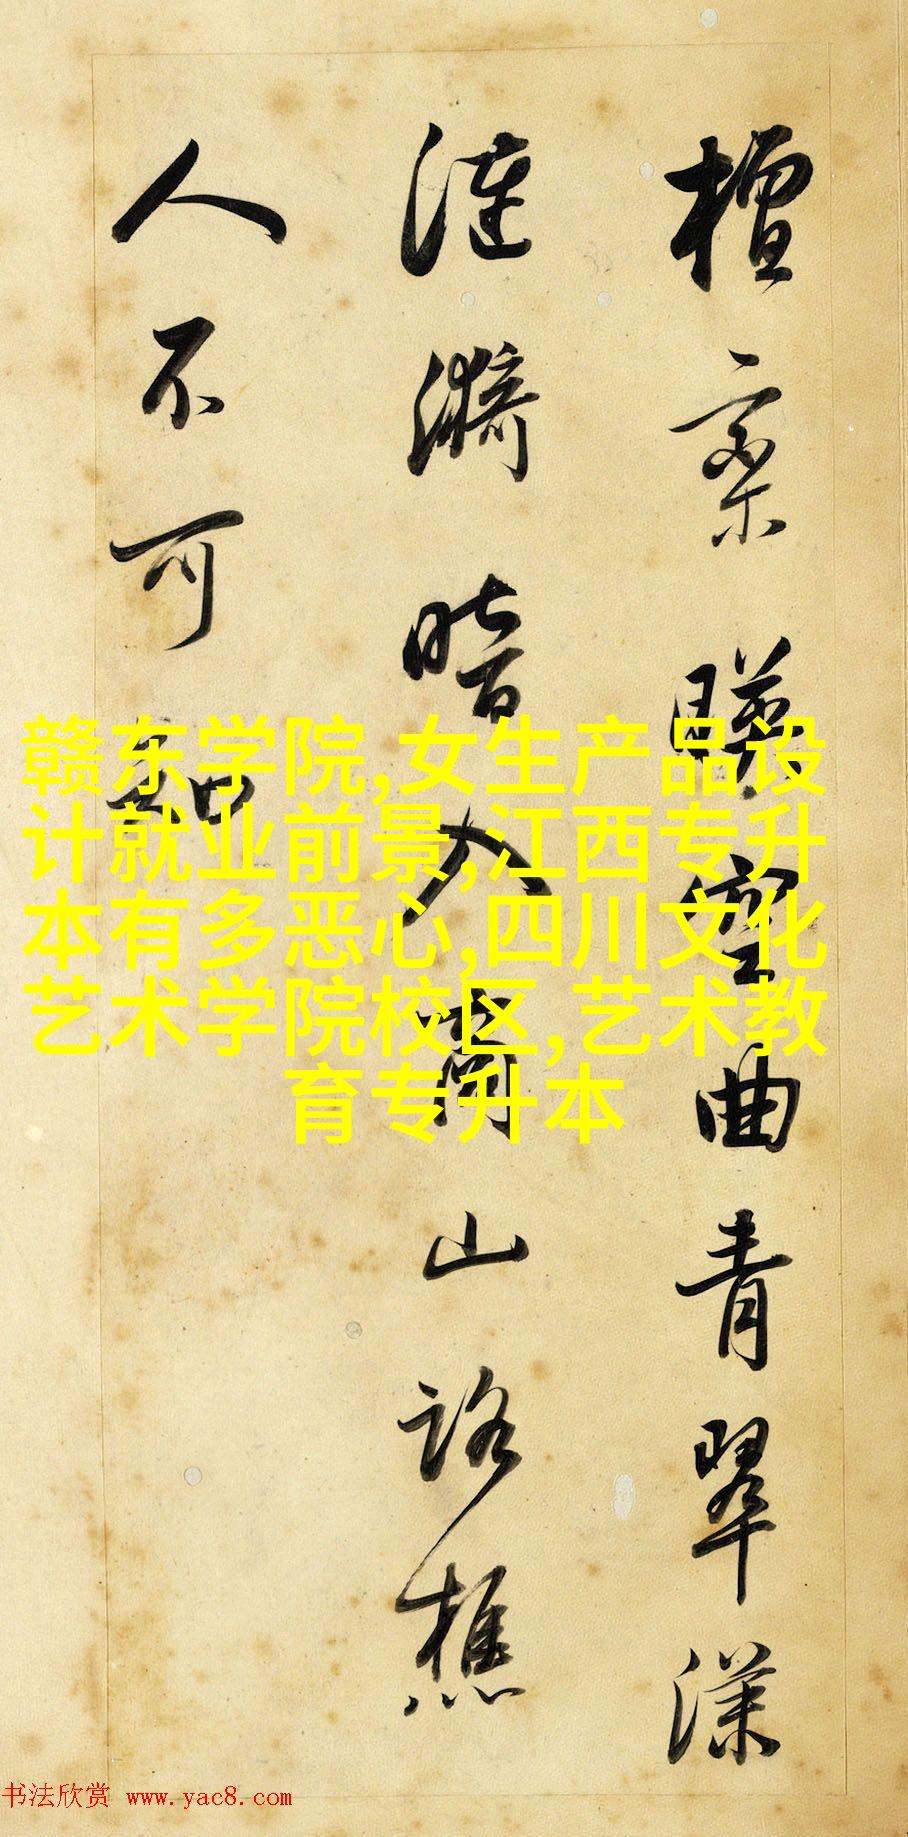 檀栾暎空曲青翠漾
涟漪暗入商山路樵
人不可知
赣东学院,女生产品设
计就业前景,江西专升
本有多恶心,四川文化
艺术学院校区,艺术教
育专升本
书法欣赏 www.yac8.com